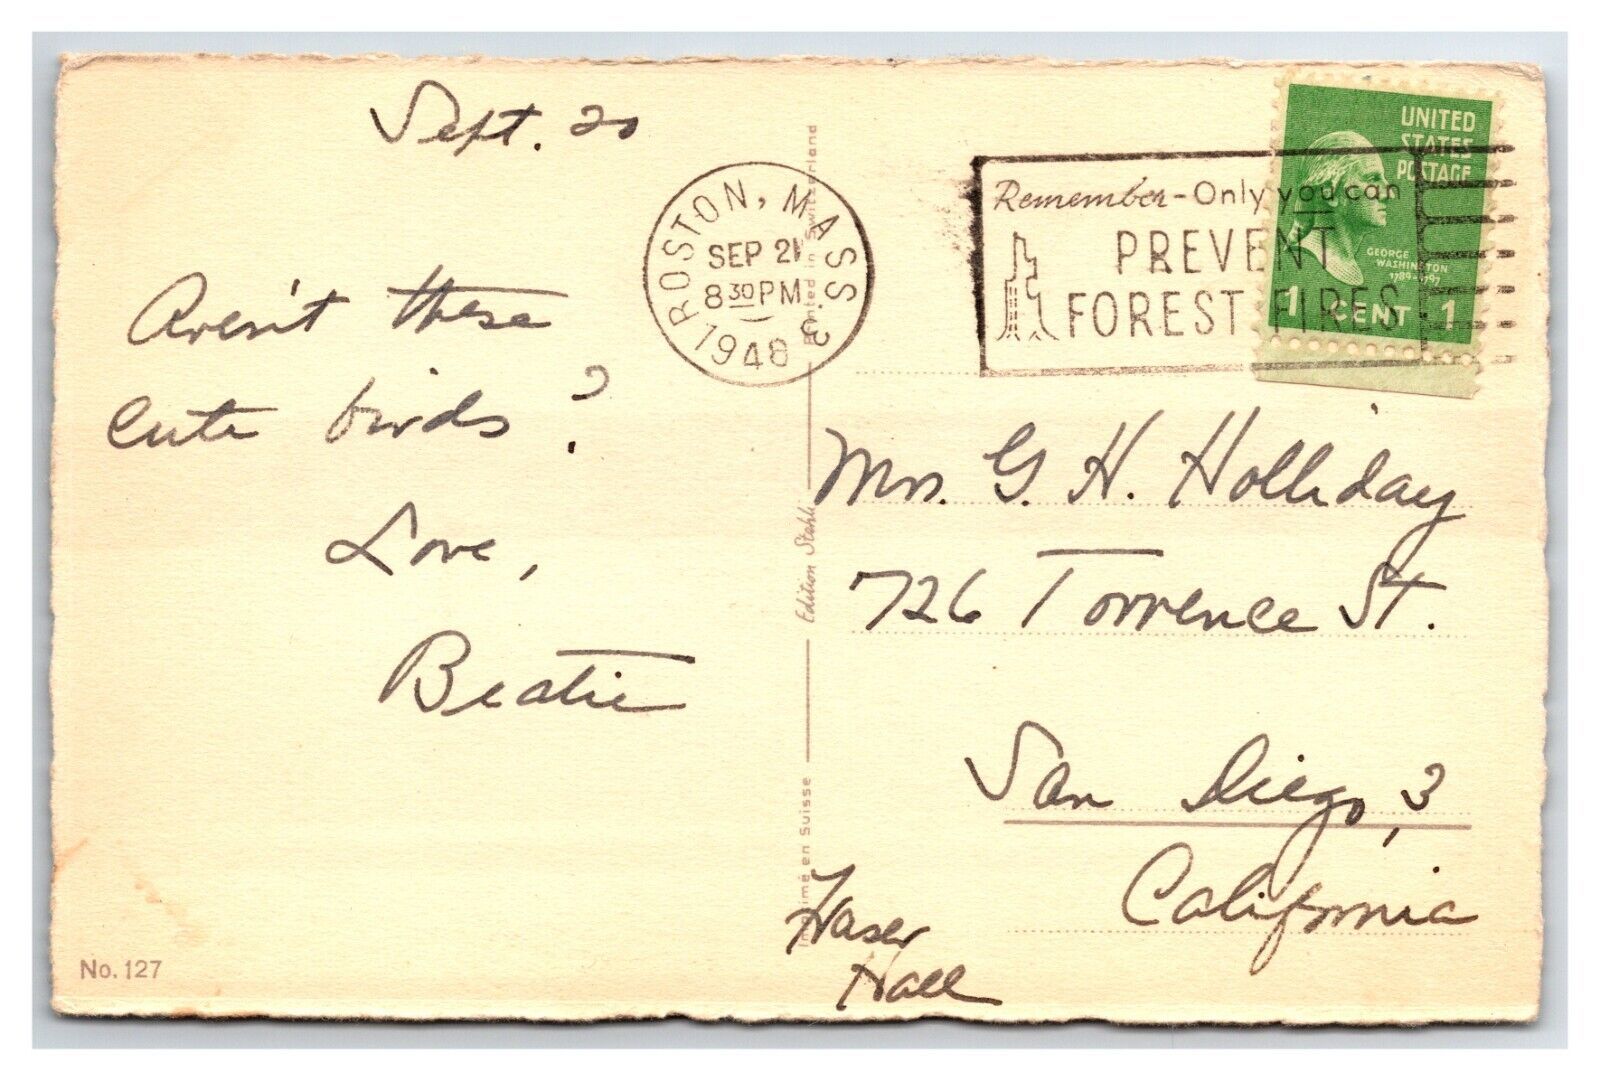 Sept. 20
Aren't these
cute birds?
Love,
Beatie
No. 127
Printed in Switzerland
Edition Stehli
Imprimé en Suisse
BOSTON, MASS. 3
SEP 21
8 30 PM
1948
Remember - Only you can
PREVENT
FOREST FIRES
UNITED
STATES
POSTAGE
GEORGE
WASHINGTON
1789-1797
1 CENT 1
Mrs. G. H. Holliday
726 Torrence St.
San Diego, 3
California
Hall